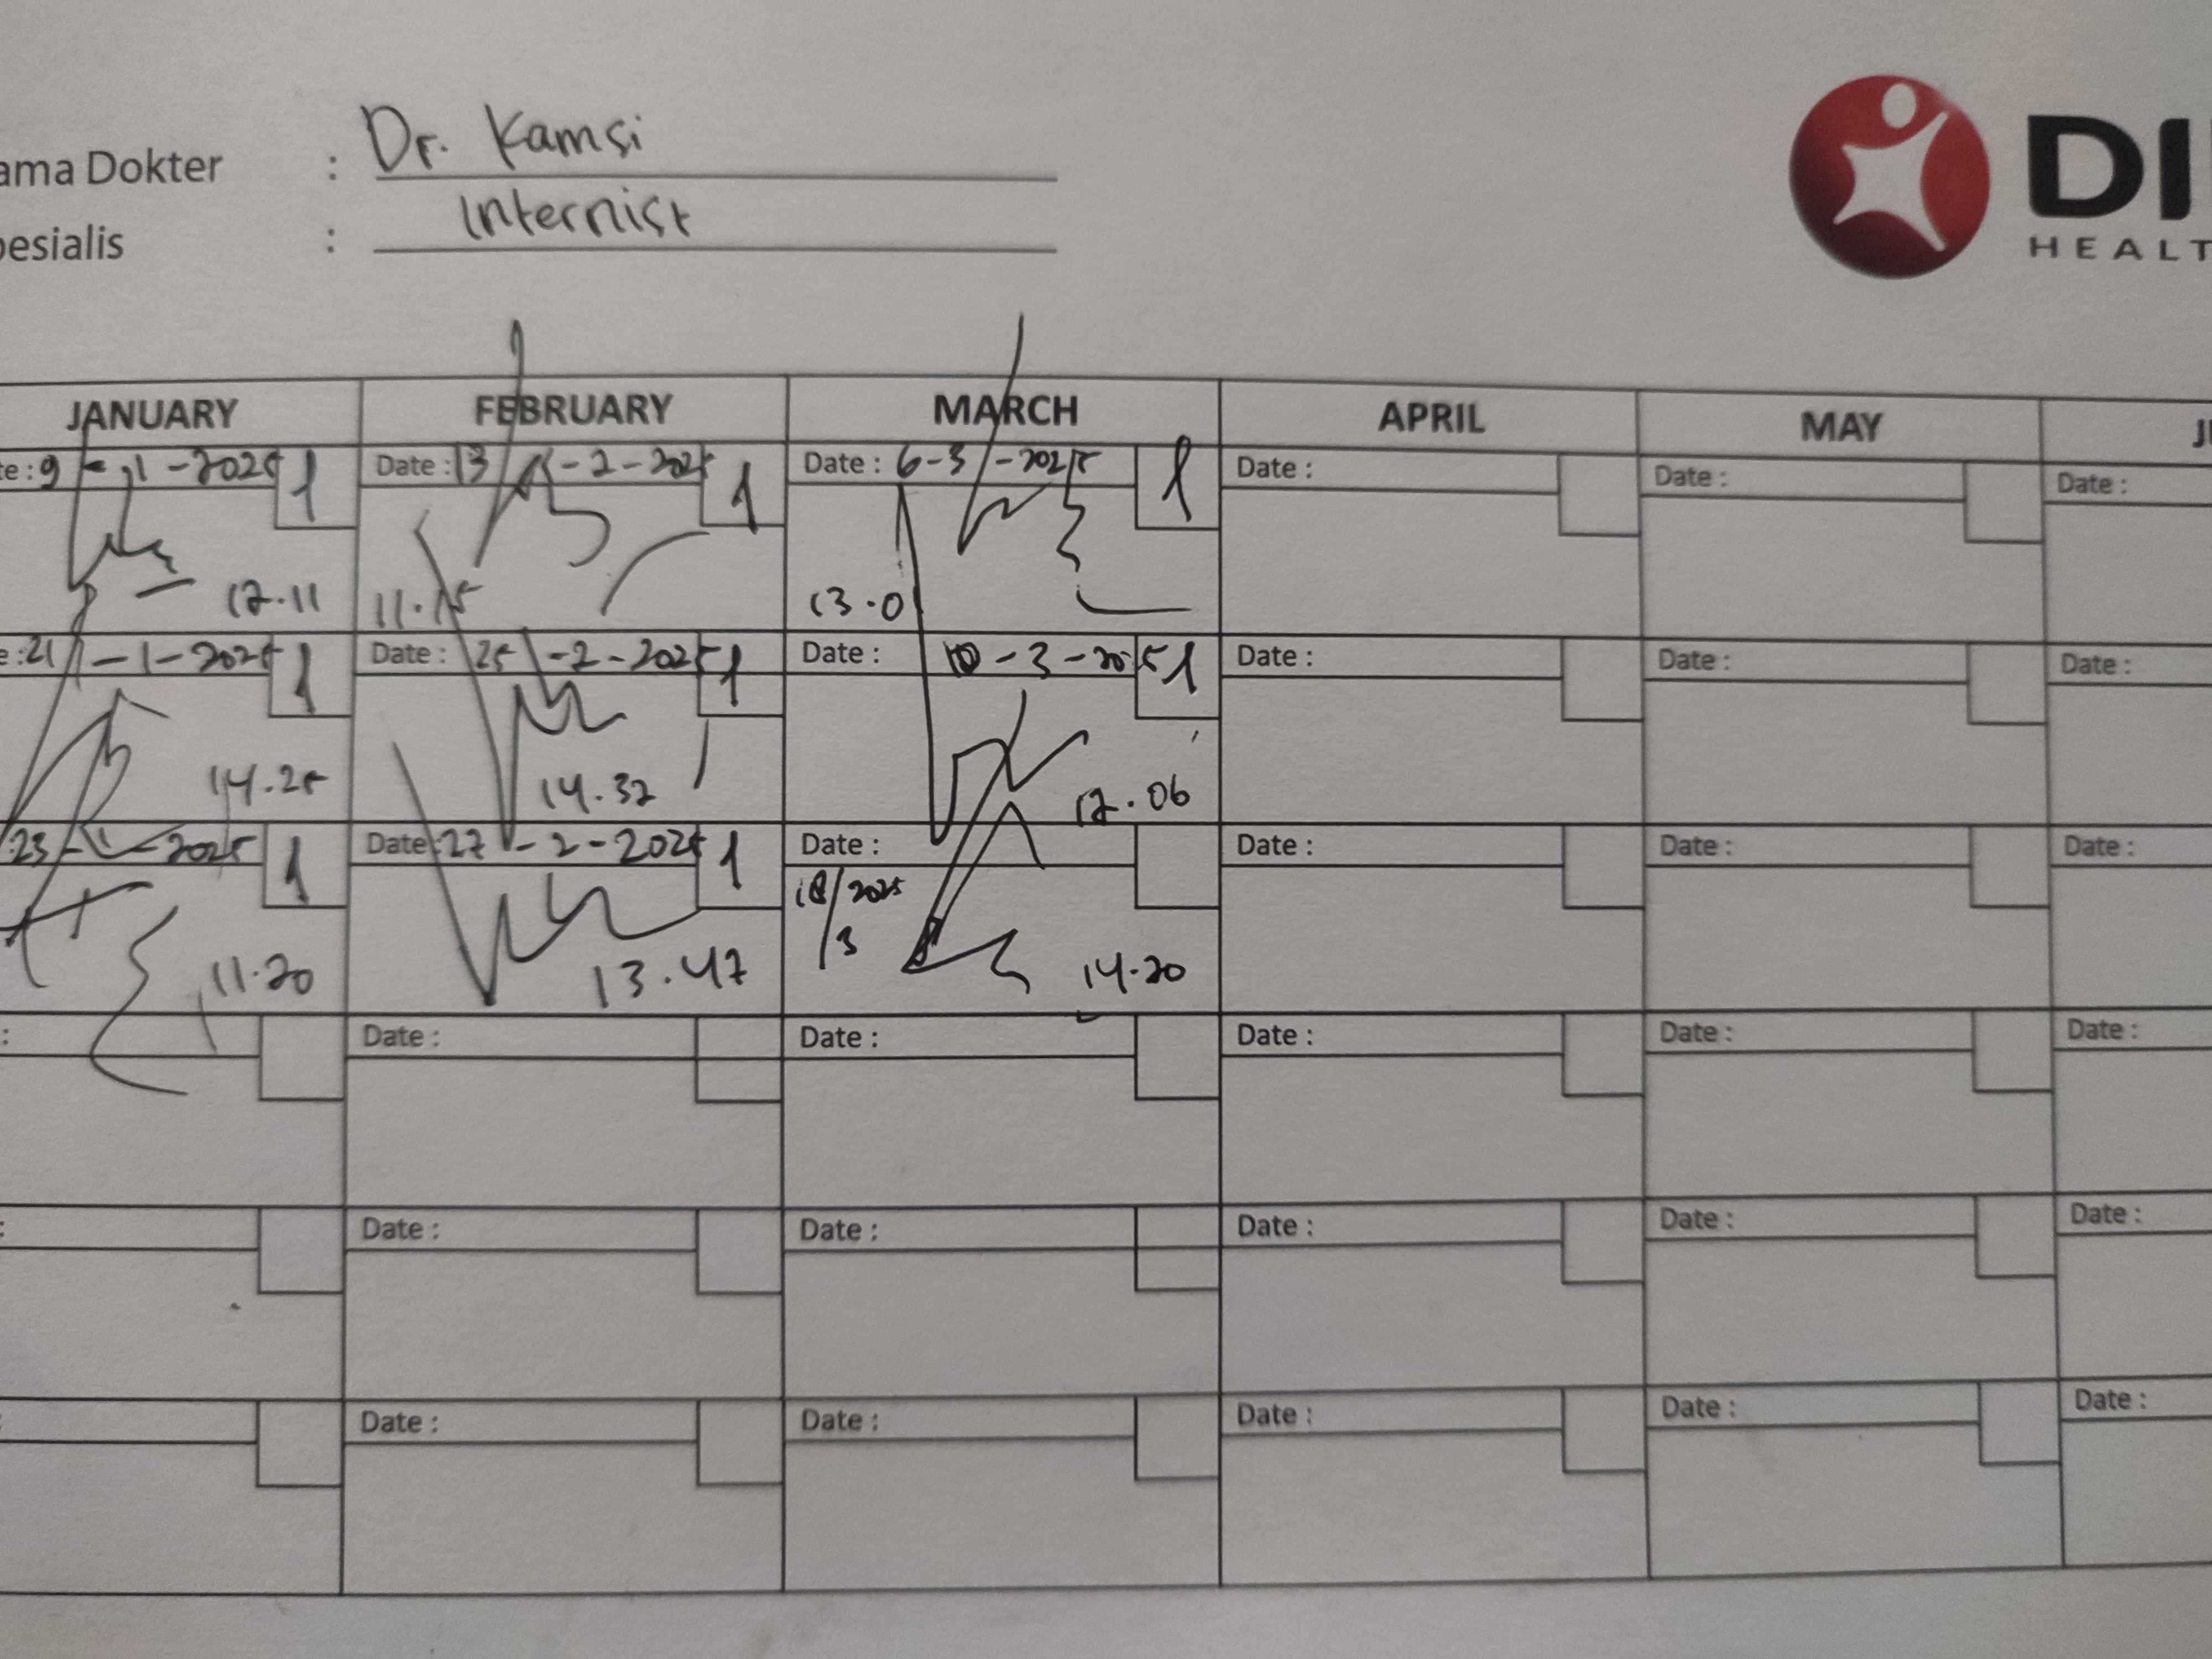 ama Dokter : Dr. Kamsi
pesialis : Internist
DI
HEALT
JANUARY FEBRUARY MARCH APRIL MAY J
te : 9 - 1 - 2025 1 Date : 13 - 2 - 2025 1 Date : 6 - 3 - 2025 1 Date : Date : Date :
12.11 11.15 13.0
e : 21 - 1 - 2025 1 Date : 25 - 2 - 2025 1 Date : 10 - 3 - 2025 1 Date : Date : Date :
14.25 14.32 12.06
23 - 1 - 2025 1 Date : 27 - 2 - 2025 1 Date : Date : Date : Date :
18/3 2025
11.20 13.47 14.20
: Date : Date : Date : Date : Date :
: Date : Date : Date : Date : Date :
: Date : Date : Date : Date : Date :